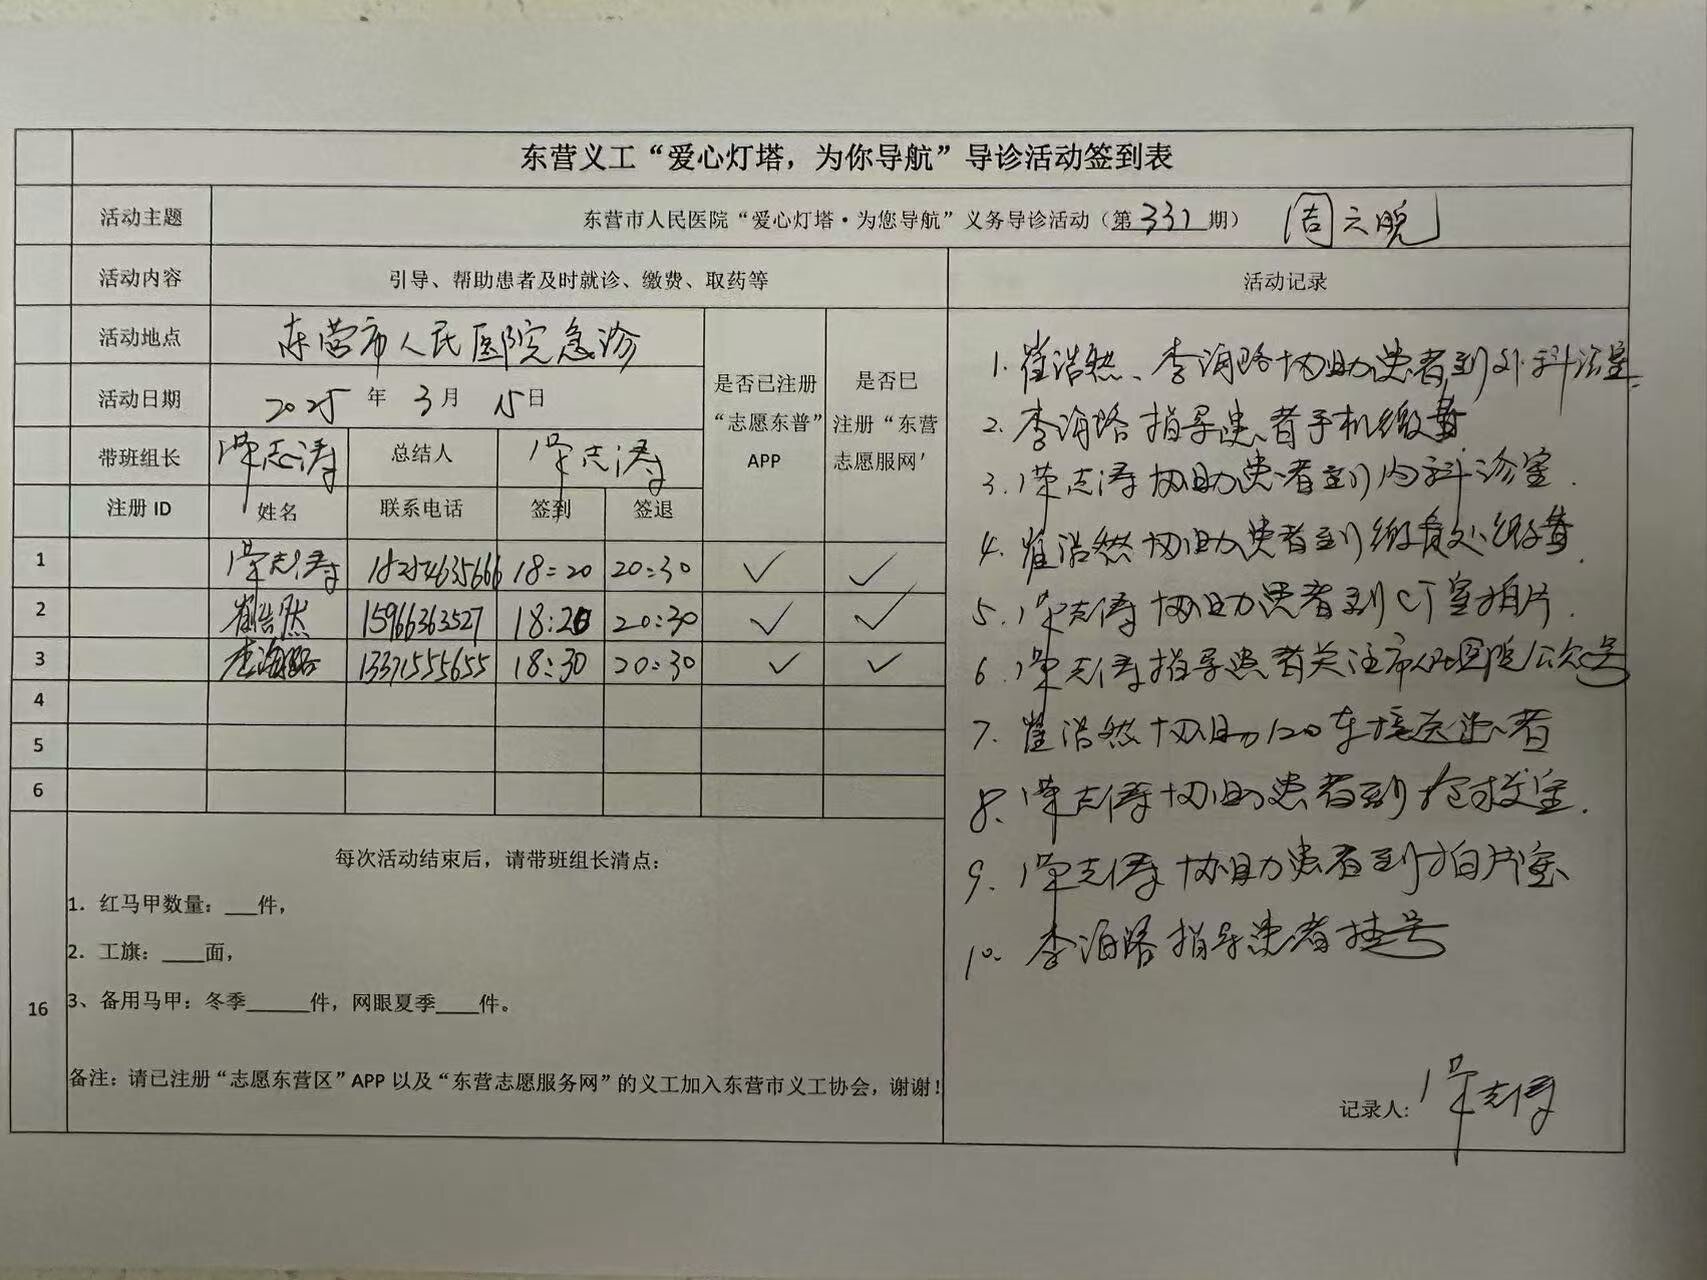 东营义工“爱心灯塔，为你导航”导诊活动签到表
活动主题 东营市人民医院“爱心灯塔·为您导航”义务导诊活动（第331期） 周云晓
活动内容 引导、帮助患者及时就诊、缴费、取药等 活动记录
活动地点 东营市人民医院急诊
是否已注册“志愿东普”APP
是否巳注册“东营志愿服网’
活动日期 2025年3月15日
带班组长 荣志涛 总结人 荣志涛
注册ID 姓名 联系电话 签到 签退
1 荣志涛 18254635666 18:20 20:30 ✓ ✓
2 崔浩然 15966363527 18:20 20:30 ✓ ✓
3 李海路 13371555655 18:30 20:30 ✓ ✓
4
5
6
1. 崔浩然、李海路协助患者到外科诊室.
2. 李海路指导患者手机缴费
3. 荣志涛协助患者到内科诊室.
4. 崔浩然协助患者到缴费处缴费.
5. 荣志涛协助患者到CT室拍片.
6. 荣志涛指导患者关注市人民医院公众号
7. 崔浩然协助120车接送患者
8. 荣志涛协助患者到抢救室.
9. 荣志涛协助患者到拍片室
10. 李海路指导患者挂号
记录人: 荣志涛
16
每次活动结束后，请带班组长清点：
1. 红马甲数量：___件，
2. 工旗：____面，
3、备用马甲：冬季______件，网眼夏季____件。
备注：请已注册“志愿东营区”APP以及“东营志愿服务网”的义工加入东营市义工协会，谢谢！